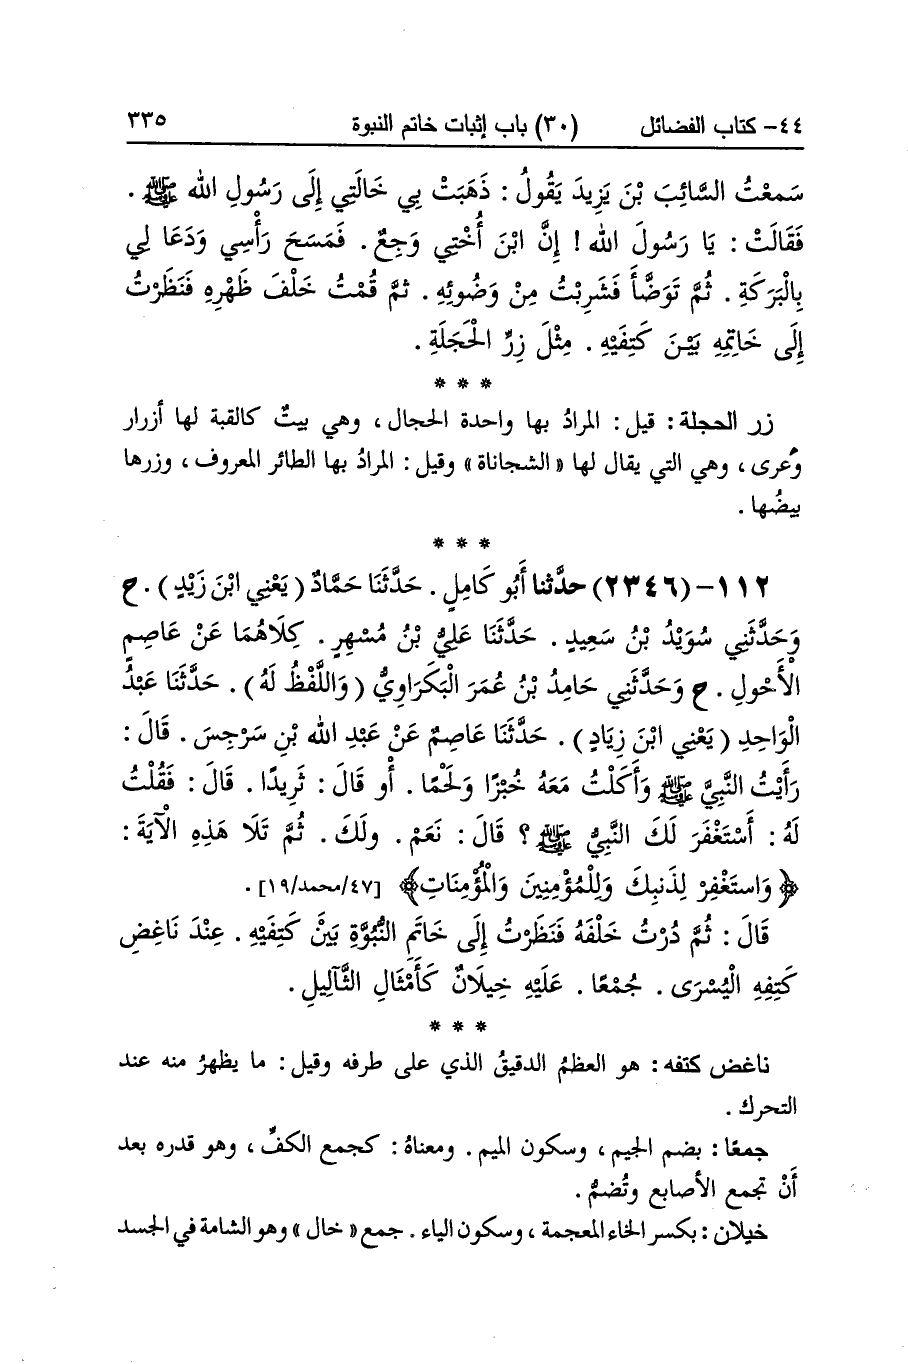 ٤٤- كتاب الفضائل (٣٠) باب إثبات خاتم النبوة ٣٣٥
سَمعْتُ السَّائِبَ بْنَ يَزِيدَ يَقُولُ : ذَهَبَتْ بِي خَالَتِي إِلَى رَسُولِ الله ﷺ .
فَقَالَتْ : يَا رَسُولَ الله ! إِنَّ ابْنَ أُخْتِي وَجِعٌ . فَمَسَحَ رَأْسِي وَدَعَا لِي
بِالْبَرَكَةِ . ثُمَّ تَوَضَّأَ فَشَرِبْتُ مِنْ وَضُوئِهِ . ثمَّ قُمْتُ خَلْفَ ظَهْرِهِ فَنَظَرْتُ
إِلَى خَاتِمِهِ بَيْنَ كَتِفَيْهِ . مِثْلَ زِرِّ الْحَجَلَةِ .
* * *
زر الحجلة : قيل : المرادُ بها واحدة الحجال ، وهي بيتٌ كالقبة لها أزرار
وعُرى ، وهي التي يقال لها « الشجاناة » وقيل : المرادُ بها الطائر المعروف ، وزرها
بيضُها .
* * *
١١٢-(٢٣٤٦) حدَّثنا أَبُو كَامِلٍ . حَدَّثَنَا حَمَّادٌ ( يَعْنِي ابْنَ زَيْدٍ ) . ح
وَحَدَّثَنِي سُوَيْدُ بْنُ سَعِيدٍ . حَدَّثَنَا عَلِيُّ بْنُ مُسْهِرٍ . كِلَاهُمَا عَنْ عَاصِمٍ
الْأَحْولِ . ح وَحَدَّثَنِي حَامِدُ بْنُ عُمَرَ الْبَكْرَاوِيُّ ( وَاللَّفْظُ لَهُ ) . حَدَّثَنَا عَبْدُ
الْوَاحِدِ ( يَعْنِي ابْنَ زِيَادٍ ) . حَدَّثَنَا عَاصِمٌ عَنْ عَبْدِ الله بْنِ سَرْجِسَ . قَالَ :
رَأَيْتُ النَّبِيَّ ﷺ وَأَكَلْتُ مَعَهُ خُبْزًا وَلَحْمًا . أَو قَالَ : ثَرِيدًا . قَالَ : فَقُلْتُ
لَهُ : أَسْتَغْفَرَ لَكَ النَّبِيُّ ﷺ ؟ قَالَ : نَعَمْ . ولَكَ . ثُمَّ تَلَا هَذِهِ الْآيَةَ :
﴿ وَاستَغْفِرْ لِذَنبِكَ وَلِلْمُؤْمِنِينَ وَالْمُؤْمِنَاتِ﴾ [٤٧/محمد/١٩] .
قَالَ : ثُمَّ دُرْتُ خَلْفَهُ فَنَظَرْتُ إِلَى خَاتَمِ النُّبُوَّةِ بَيْنَ كَتِفَيْهِ . عِنْدَ نَاغِضِ
كَتِفِهِ الْيُسْرَى . جُمْعًا . عَلَيْهِ خِيلَانٌ كَأَمْثَالِ الثَّآلِيلِ .
* * *
ناغض كتفه : هو العظمُ الدقيقُ الذي على طرفه وقيل : ما يظهرُ منه عند
التحرك .
جمعًا : بضم الجيم ، وسكون الميم . ومعناهُ : كجمع الكفِّ ، وهو قدره بعد
أَنْ تجمع الأصابع وتُضمُّ .
خيلان : بكسر الخاء المعجمة ، وسكون الياء . جمع « خال » وهو الشامة في الجسد